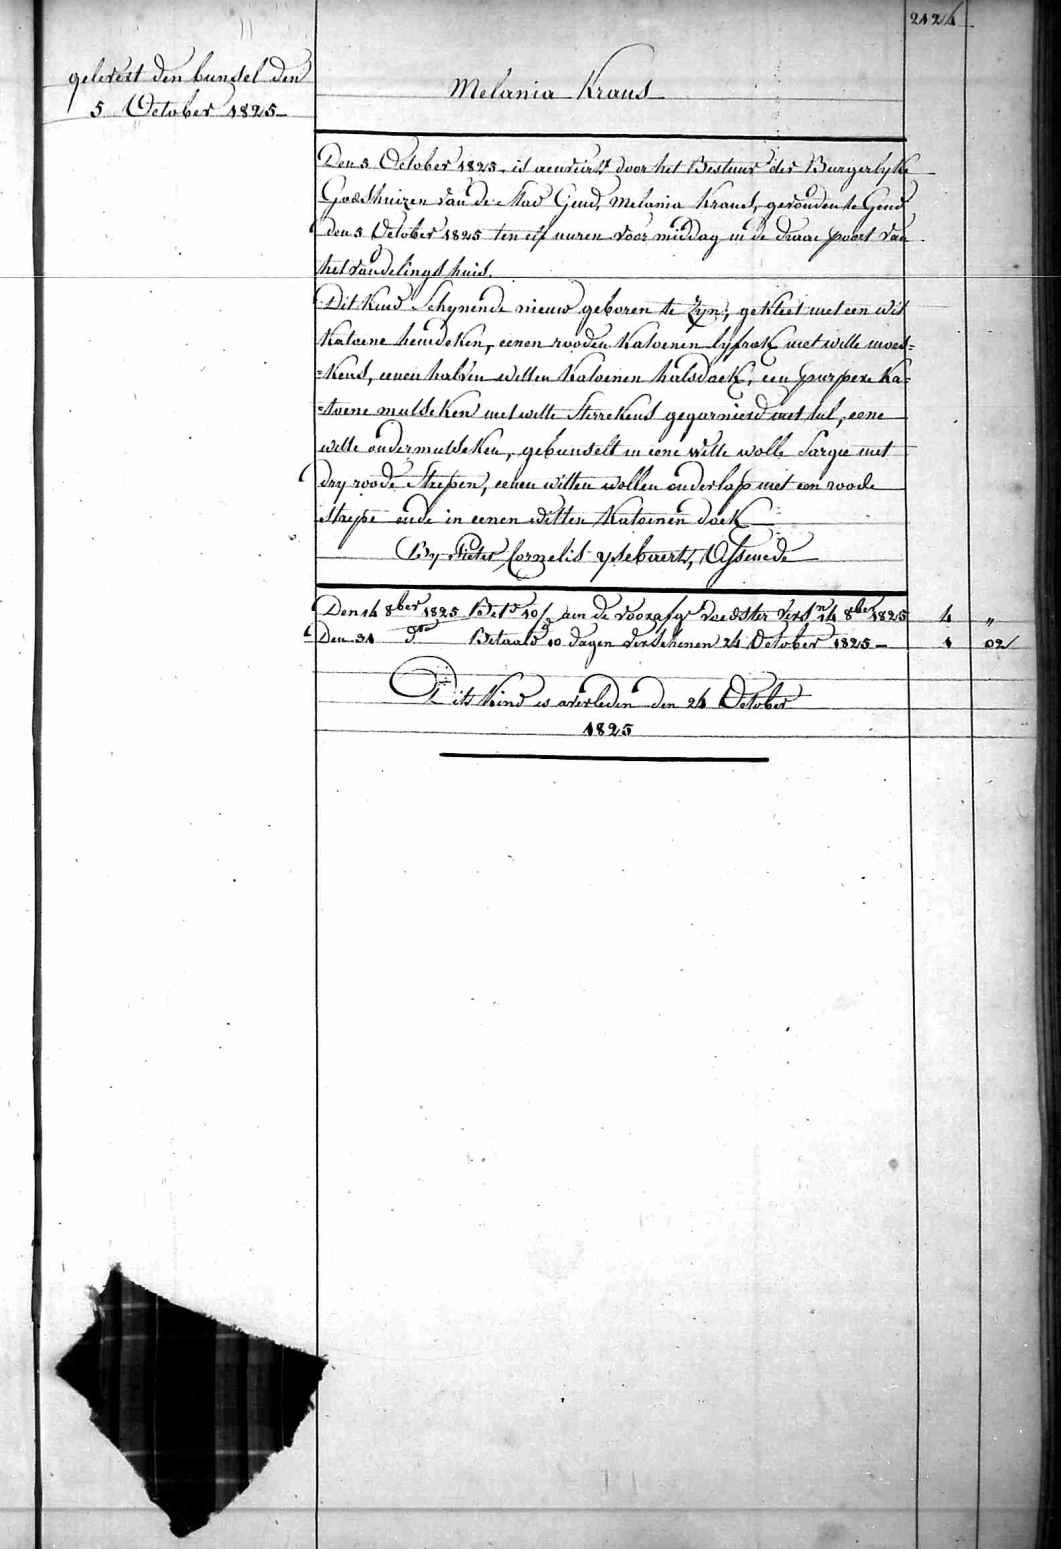 2124
gelevert den bunsel den
5 October 1825
Melania Kraus
Den 5 October 1825 is aenveird door het Bestuur der Burgerlyke
Godshuizen van de Stad Gend, Melania Kraus, gevonden te Gend
den 5 October 1825 ten elf uuren voor middag in de draae poort van
het vondelings huis.
Dit Kind Schynende nieuw geboren te Zyn, gekleet met een wit
Katoene hemdeken, eenen rooden Katoenen lyfrok met witte moes=
=kens, eenen halven witten Katoenen halsdoek, een purpere Ka=
=toene mutseken met witte Sterrekens gegarnierd met tul, eene
witte ondermutseken, gebunselt in eene witte wolle Sargie met
dry roode Strepen, eenen witten wollen onderlap met een roode
Strepe ende in eenen witten Katoenen doek
By Pieter Cornelis Ysebaert, Assenede
Den 14 8ber 1825 Betd 10/ aen de voorafg voedster versn 14 8ber 1825 4 "
Den 31 do Betaald 10 dagen verschenen 24 October 1825 - 1 02
Dit Kind is overleden den 24 October
1825